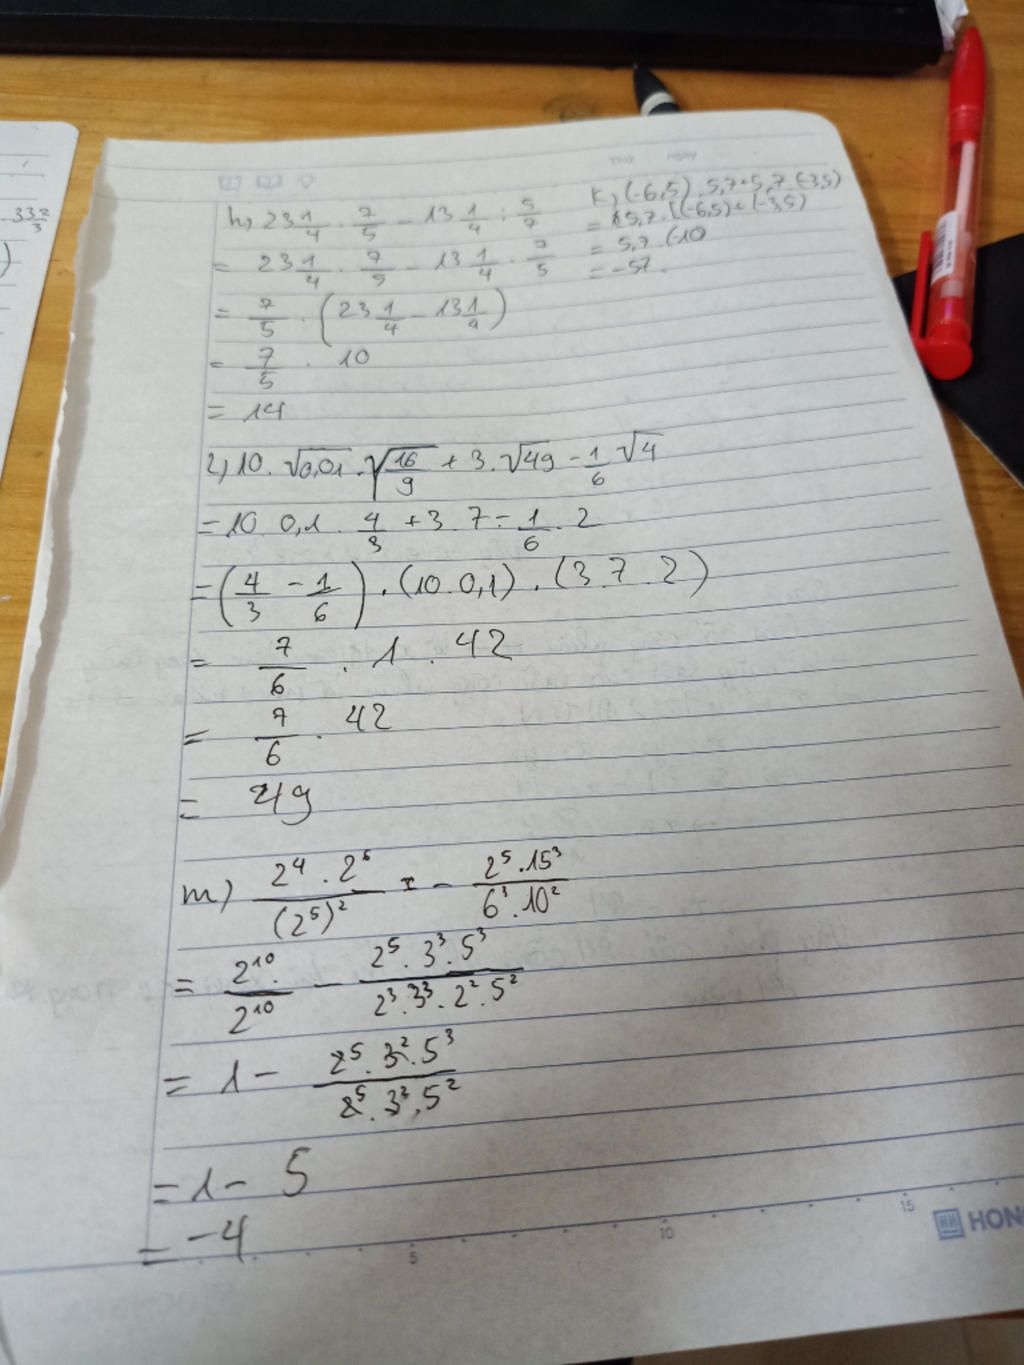 33 2/3
)
Thứ Ngày
h, 23 1/4 . 7/5 - 13 1/4 : 5/7
= 23 1/4 . 7/5 - 13 1/4 . 7/5
= 7/5 . (23 1/4 - 13 1/4)
= 7/5 . 10
= 14
k, (-6,5) . 5,7 + 5,7 . (-3,5)
= 5,7 . [(-6,5) + (-3,5)
= 5,7 . (-10)
= -57.
l, 10 . √0,01 . √16/9 + 3 . √49 - 1/6 √4
= 10 . 0,1 . 4/3 + 3 . 7 - 1/6 . 2
= (4/3 - 1/6) . (10 . 0,1) . (3 . 7 . 2)
= 7/6 . 1 . 42
= 7/6 . 42
= 49
m) 2⁴ . 2⁶ / (2⁵)² - 2⁵ . 15³ / 6³ . 10²
= 2¹⁰ / 2¹⁰ - 2⁵ . 3³ . 5³ / 2³ . 3³ . 2² . 5²
= 1 - 2⁵ . 3² . 5³ / 2⁵ . 3³ . 5²
= 1 - 5
= -4
5 10 15
HONG